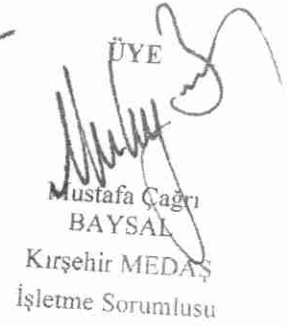 ÜYE
Mustafa Çağrı
BAYSAL
Kırşehir MEDAŞ
İşletme Sorumlusu